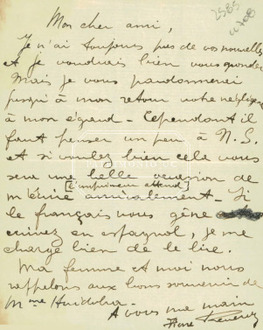 2585
Mon cher ami,
Je n'ai toujours pas de vos nouvelles
et je voudrais bien vous gronder
Mais je vous pardonnerai
jusqu'à mon retour votre négligence
à mon égard - Cependant il
faut penser un peu à N.S.
et si voulez bien cela vous
sera une belle occasion de
[l'imprimeur attend]
m'écrire amicalement - Si
le français vous gêne
écrivez en espagnol, je me
charge bien de le lire.
Ma femme et moi nous
rappelons aux bons souvenirs de
Mme Huidobro -
A vous ma main
Pierre Reverdy